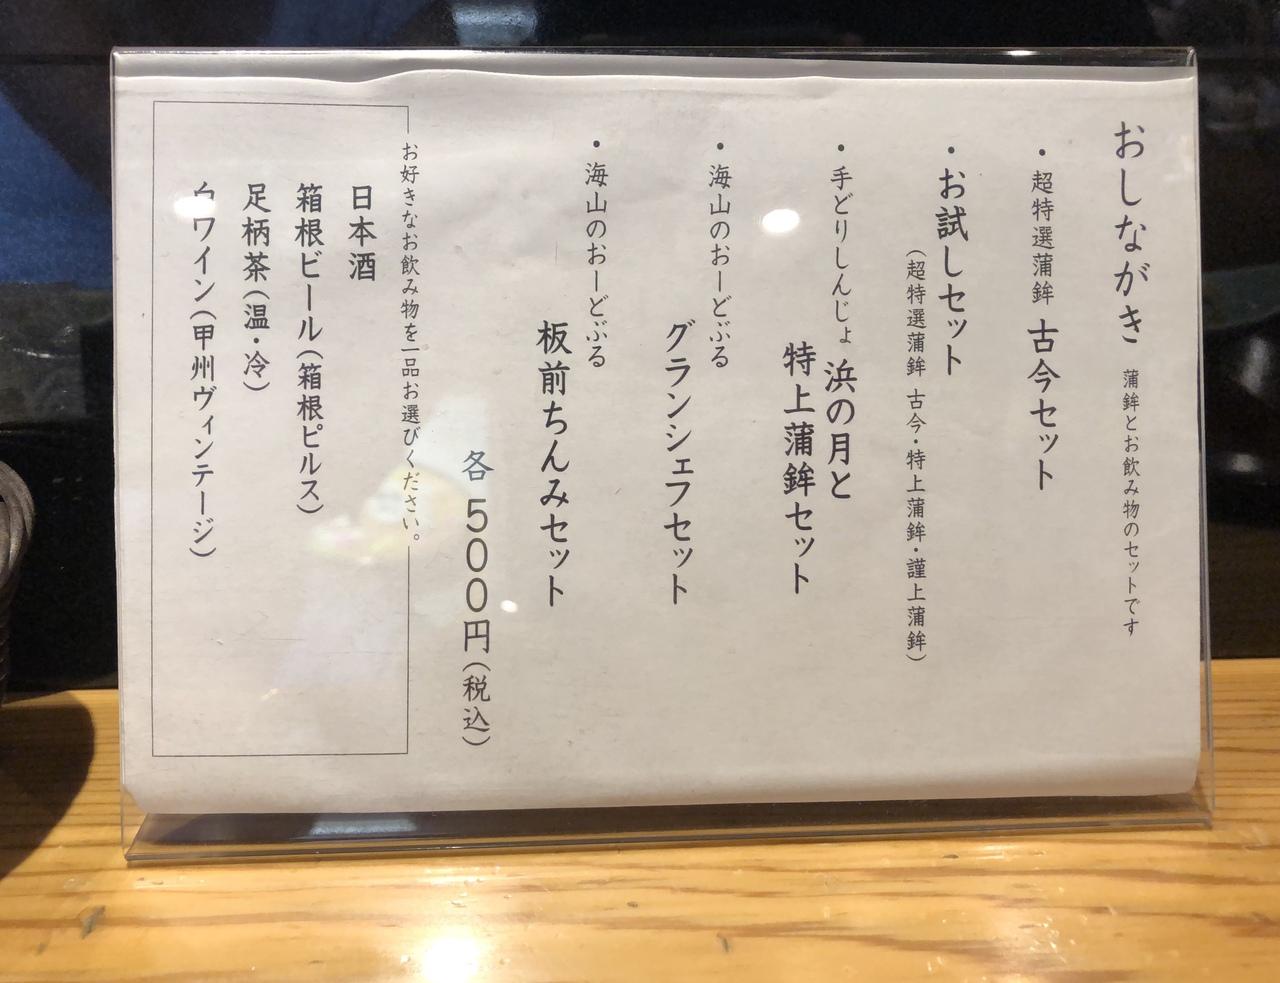 おしながき 蒲鉾とお飲み物のセットです
・超特選蒲鉾 古今セット
・お試しセット
(超特選蒲鉾 古今・特上蒲鉾・謹上蒲鉾)
・手どりしんじょ 浜の月と
特上蒲鉾セット
・海山のおーどぶる
グランシェフセット
・海山のおーどぶる
板前ちんみセット
各 500円(税込)
お好きなお飲み物を一品お選びください。
日本酒
箱根ビール(箱根ピルス)
足柄茶(温・冷)
白ワイン(甲州ヴィンテージ)